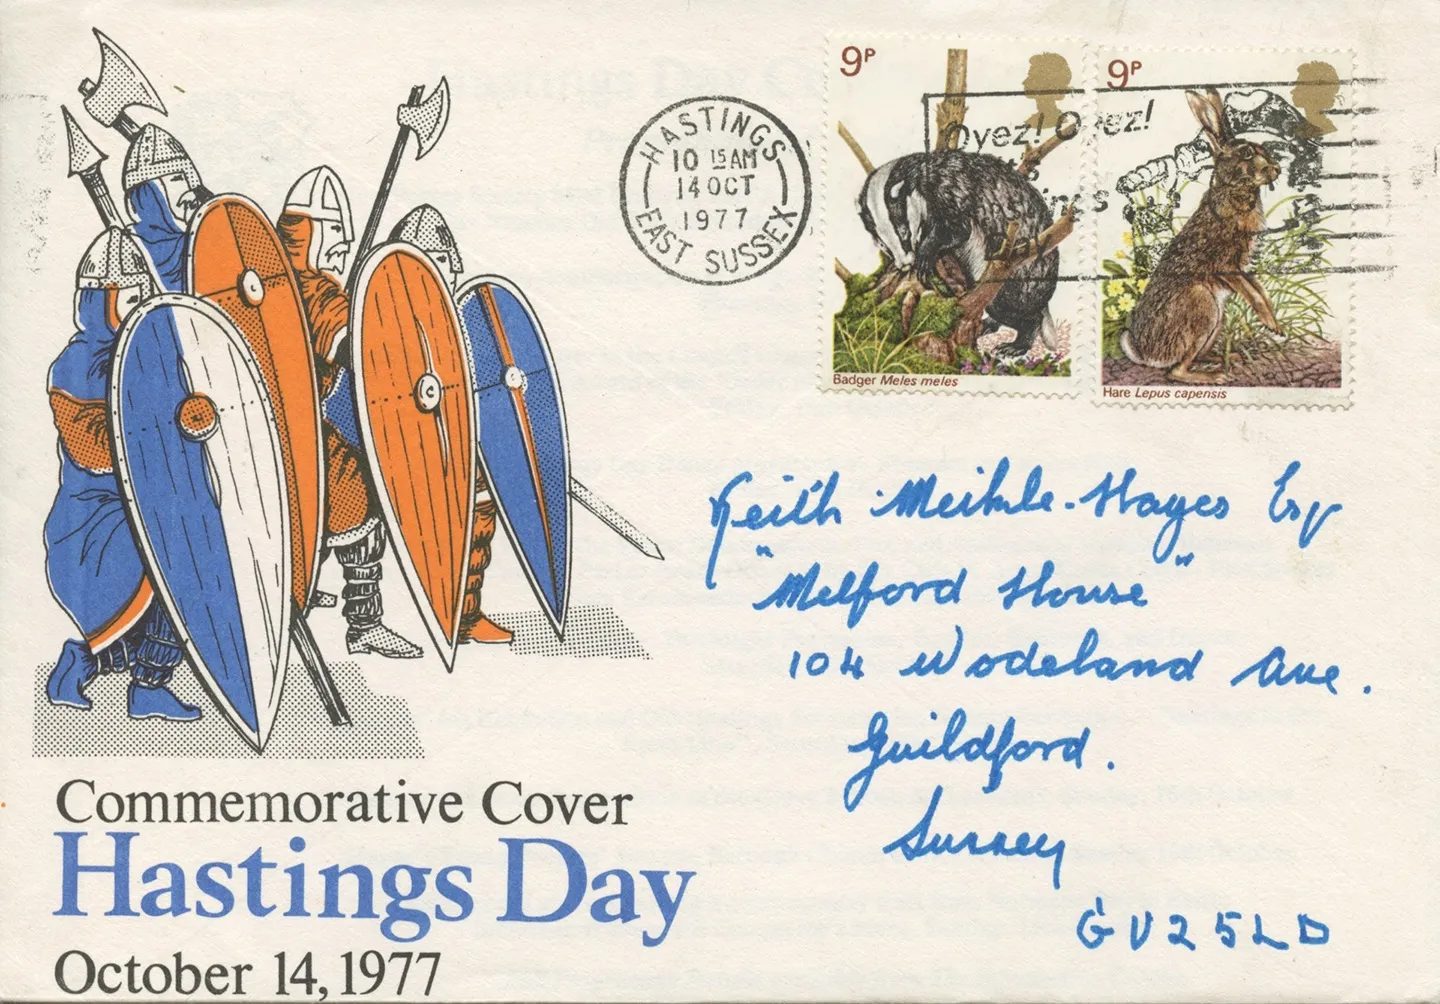 HASTINGS
10 15 AM
14 OCT
1977
EAST SUSSEX
Oyez! Oyez!
Day
9P
Badger Meles meles
9P
Hare Lepus capensis
Keith Meikle-Hayes Esq
"Melford House"
104 Wodeland Ave.
Guildford.
Surrey
GU25LD
Commemorative Cover
Hastings Day
October 14, 1977